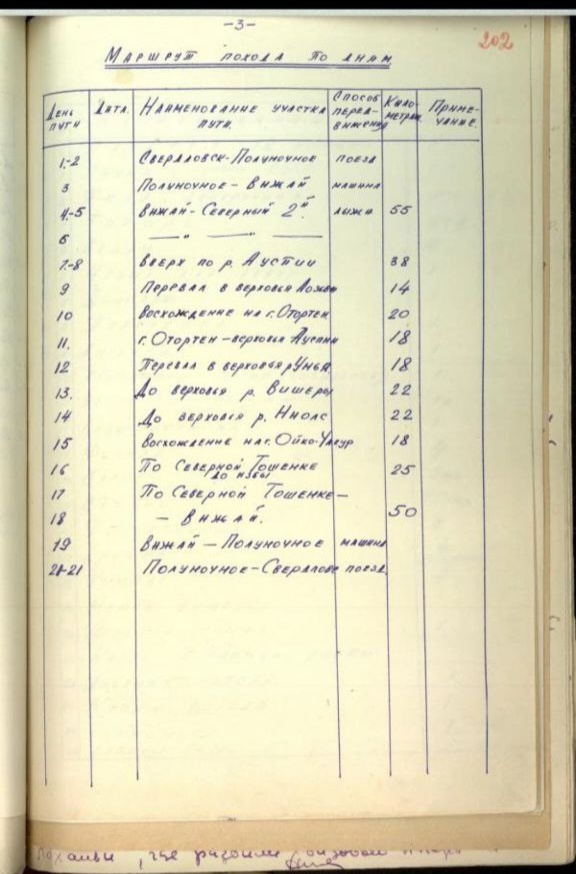 -3-
202
Маршрут похода по дням
День пути Дата. Наименование участка пути. Способ передвижения Километраж Примечание.
1-2 Свердловск-Полуночное поезд
3 Полуночное - Вижай машина
4-5 Вижай-Северный 2й. лыжи 55
6 —— " —— " ——
7-8 Вверх по р. Ауспии 38
9 Перевал в верховья Лозьвы 14
10 Восхождение на г. Отортен 20
11. г. Отортен - верховья Ауспии 18
12 Перевал в верховья р. Унья 18
13. До верховья р. Вишеры 22
14 До верховья р. Ниолс 22
15 Восхождение на г. Ойко-Чакур 18
16 По Северной Тошемке
до избы 25
17 По Северной Тошемке -
18 - Вижай. 50
19 Вижай - Полуночное машина
20-21 Полуночное-Свердловс поезд
, где разбили